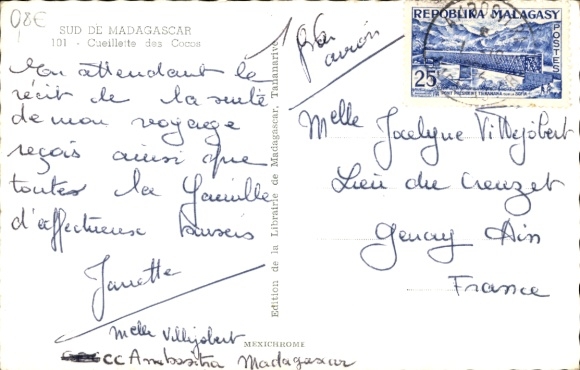 98E
SUD DE MADAGASCAR
101 - Cueillette des Cocos
En attendant le
récit de la suite
de mon voyage
reçois ainsi que
toutes la famille
d'affectueux baisers
Janette
Melle Villejobert
CC Ambositra Madagascar
Edition de la Librairie de Madagascar, Tananarive
MEXICHROME
Par
avion
REPOBLIKA MALAGASY
POSTES
25
Melle Jocelyne Villejobert
Lieu du Creuzet
Genay Ain
France